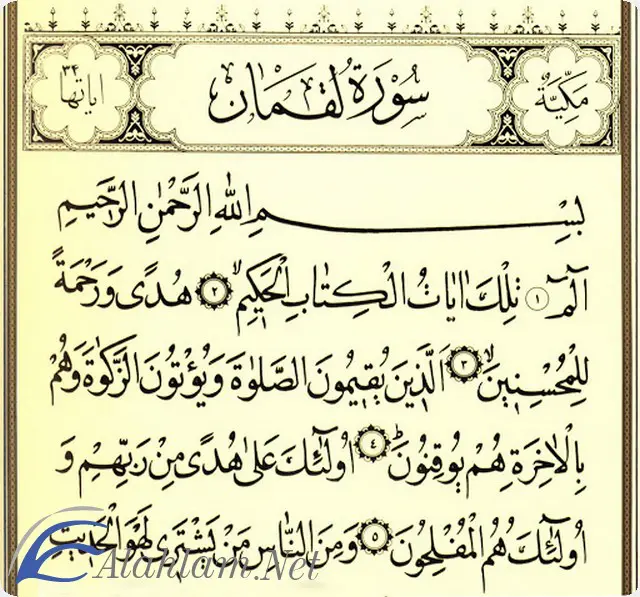 مَكِّيَّةٌ
سُورَةُ لُقْمَانَ
اٰيَاتُهَا ٣٤
بِسْمِ اللّٰهِ الرَّحْمٰنِ الرَّحٖيمِ
الٓمٓ ١ تِلْكَ اٰيَاتُ الْكِتَابِ الْحَكٖيمِۙ ٢ هُدًى وَرَحْمَةً
لِلْمُحْسِنٖينَۙ ٣ اَلَّذٖينَ يُقٖيمُونَ الصَّلٰوةَ وَيُؤْتُونَ الزَّكٰوةَ وَهُمْ
بِالْاٰخِرَةِ هُمْ يُوقِنُونَؕ ٤ اُولٰٓئِكَ عَلٰى هُدًى مِنْ رَبِّهِمْ وَ
اُولٰٓئِكَ هُمُ الْمُفْلِحُونَ ٥ وَمِنَ النَّاسِ مَنْ يَشْتَرٖى لَهْوَ الْحَدٖيثِ
Alahlam.Net